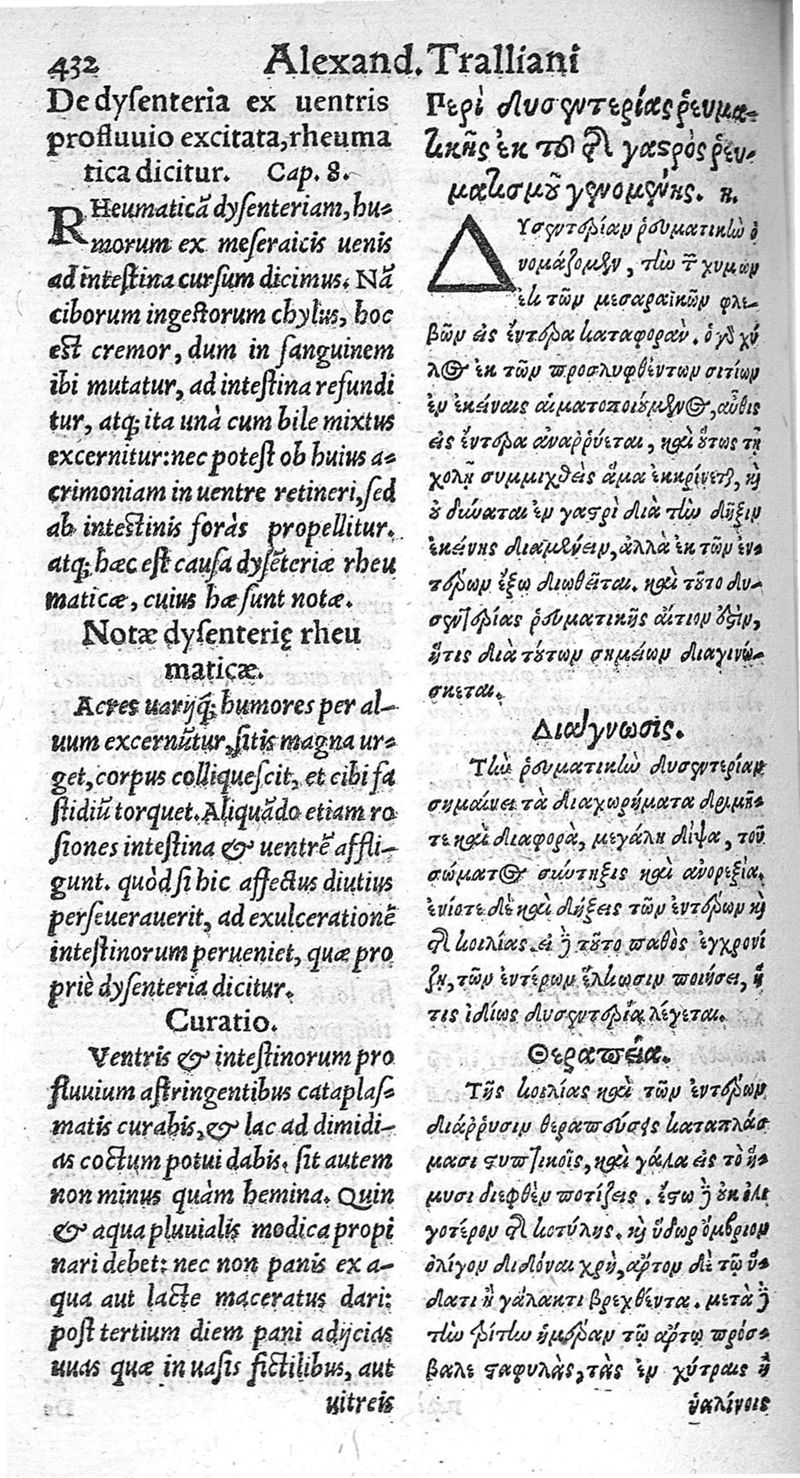 432 Alexand. Tralliani
De dysenteria ex uentris
profluuio excitata, rheuma
tica dicitur. Cap. 8.
RHeumaticā dysenteriam, hu-
morum ex meseraicis uenis
ad intestina cursum dicimus. Nā
ciborum ingestorum chylus, hoc
est cremor, dum in sanguinem
ibi mutatur, ad intestina refundi
tur, atq; ita unà cum bile mixtus
excernitur: nec potest ob huius a-
crimoniam in uentre retineri, sed
ab intestinis foràs propellitur.
atq; hæc est causa dysēteriæ rheu
maticæ, cuius hæ sunt notæ.
Notæ dysenterię rheu
maticæ.
Acres uarijq; humores per al-
uum excernūtur, sitis magna ur-
get, corpus colliquescit, et cibi fa
stidiū torquet. Aliquādo etiam ro
siones intestina & uentrē affli-
gunt. quòd si hic affectus diutius
perseuerauerit, ad exulcerationē
intestinorum perueniet, quæ pro
priè dysenteria dicitur.
Curatio.
Ventris & intestinorum pro
fluuium astringentibus cataplas-
matis curabis, & lac ad dimidi-
as coctum potui dabis. sit autem
non minus quàm hemina. Quin
& aqua pluuialis modica propi
nari debet: nec non panis ex a-
qua aut lacte maceratus dari:
post tertium diem pani adijcias
uuas quæ in uasis fictilibus, aut
uitreis
Περὶ δυσεντερίας ῥευμα-
τικῆς ἐκ τοῦ τῆς γαστρὸς ῥευ-
ματισμοῦ γενομένης. η.
ΔΥσεντερίαν ῥευματικὴν ὀ
νομάζομεν, τὴν τῶν χυμῶν
ἐκ τῶν μεσαραϊκῶν φλε-
βῶν εἰς ἔντερα καταφοράν. ὁ γὰρ χυ
λὸς ἐκ τῶν προσληφθέντων σιτίων
ἐν ἐκείναις αἱματοποιούμενος, αὖθις
εἰς ἔντερα ἀναῤῥύεται, καὶ οὕτως τῇ
χολῇ συμμιχθεὶς ἅμα ἐκκρίνεται, καὶ
οὐ δύναται ἐν γαστρὶ διὰ τὴν δῆξιν
ἐκείνης διαμένειν, ἀλλὰ ἐκ τῶν ἐν-
τέρων ἔξω διωθεῖται. καὶ τοῦτο δυ-
σεντερίας ῥευματικῆς αἴτιον ἐστὶν,
ἥτις διὰ τούτων σημείων διαγινώ-
σκεται.
Διάγνωσις.
Τὴν ῥευματικὴν δυσεντερίαν
σημαίνει τὰ διαχωρήματα δριμέα
τε καὶ διαφορὰ, μεγάλη δίψα, τοῦ
σώματος σύντηξις καὶ ἀνορεξία.
ἐνίοτε δὲ καὶ δήξεις τῶν ἐντέρων καὶ
τῆς κοιλίας. εἰ δὲ τοῦτο παθὸς ἐγχρονί
ζῃ, τῶν ἐντέρων ἕλκωσιν ποιήσει, ἥ
τις ἰδίως δυσεντερία λέγεται.
Θεραπεία.
Τῆς κοιλίας καὶ τῶν ἐντέρων
διάῤῥυσιν θεραπεύσεις καταπλάσ
μασι στυπτικοῖς, καὶ γάλα εἰς τὸ ἥ-
μισυ διεφθὲν ποτίζεις. ἔστω δὲ οὐκ ὀλι
γότερον τῆς κοτύλης. καὶ ὕδωρ ὄμβριον
ὀλίγον διδόναι χρὴ, ἄρτον δὲ τῷ ὕ-
δατι ἢ γάλακτι βρεχθέντα. μετὰ δὲ
τὴν τρίτην ἡμέραν τῷ ἄρτῳ πρόσ-
βαλε σταφυλὰς, τὰς ἐν χύτραις ἢ
ὑαλίνοις